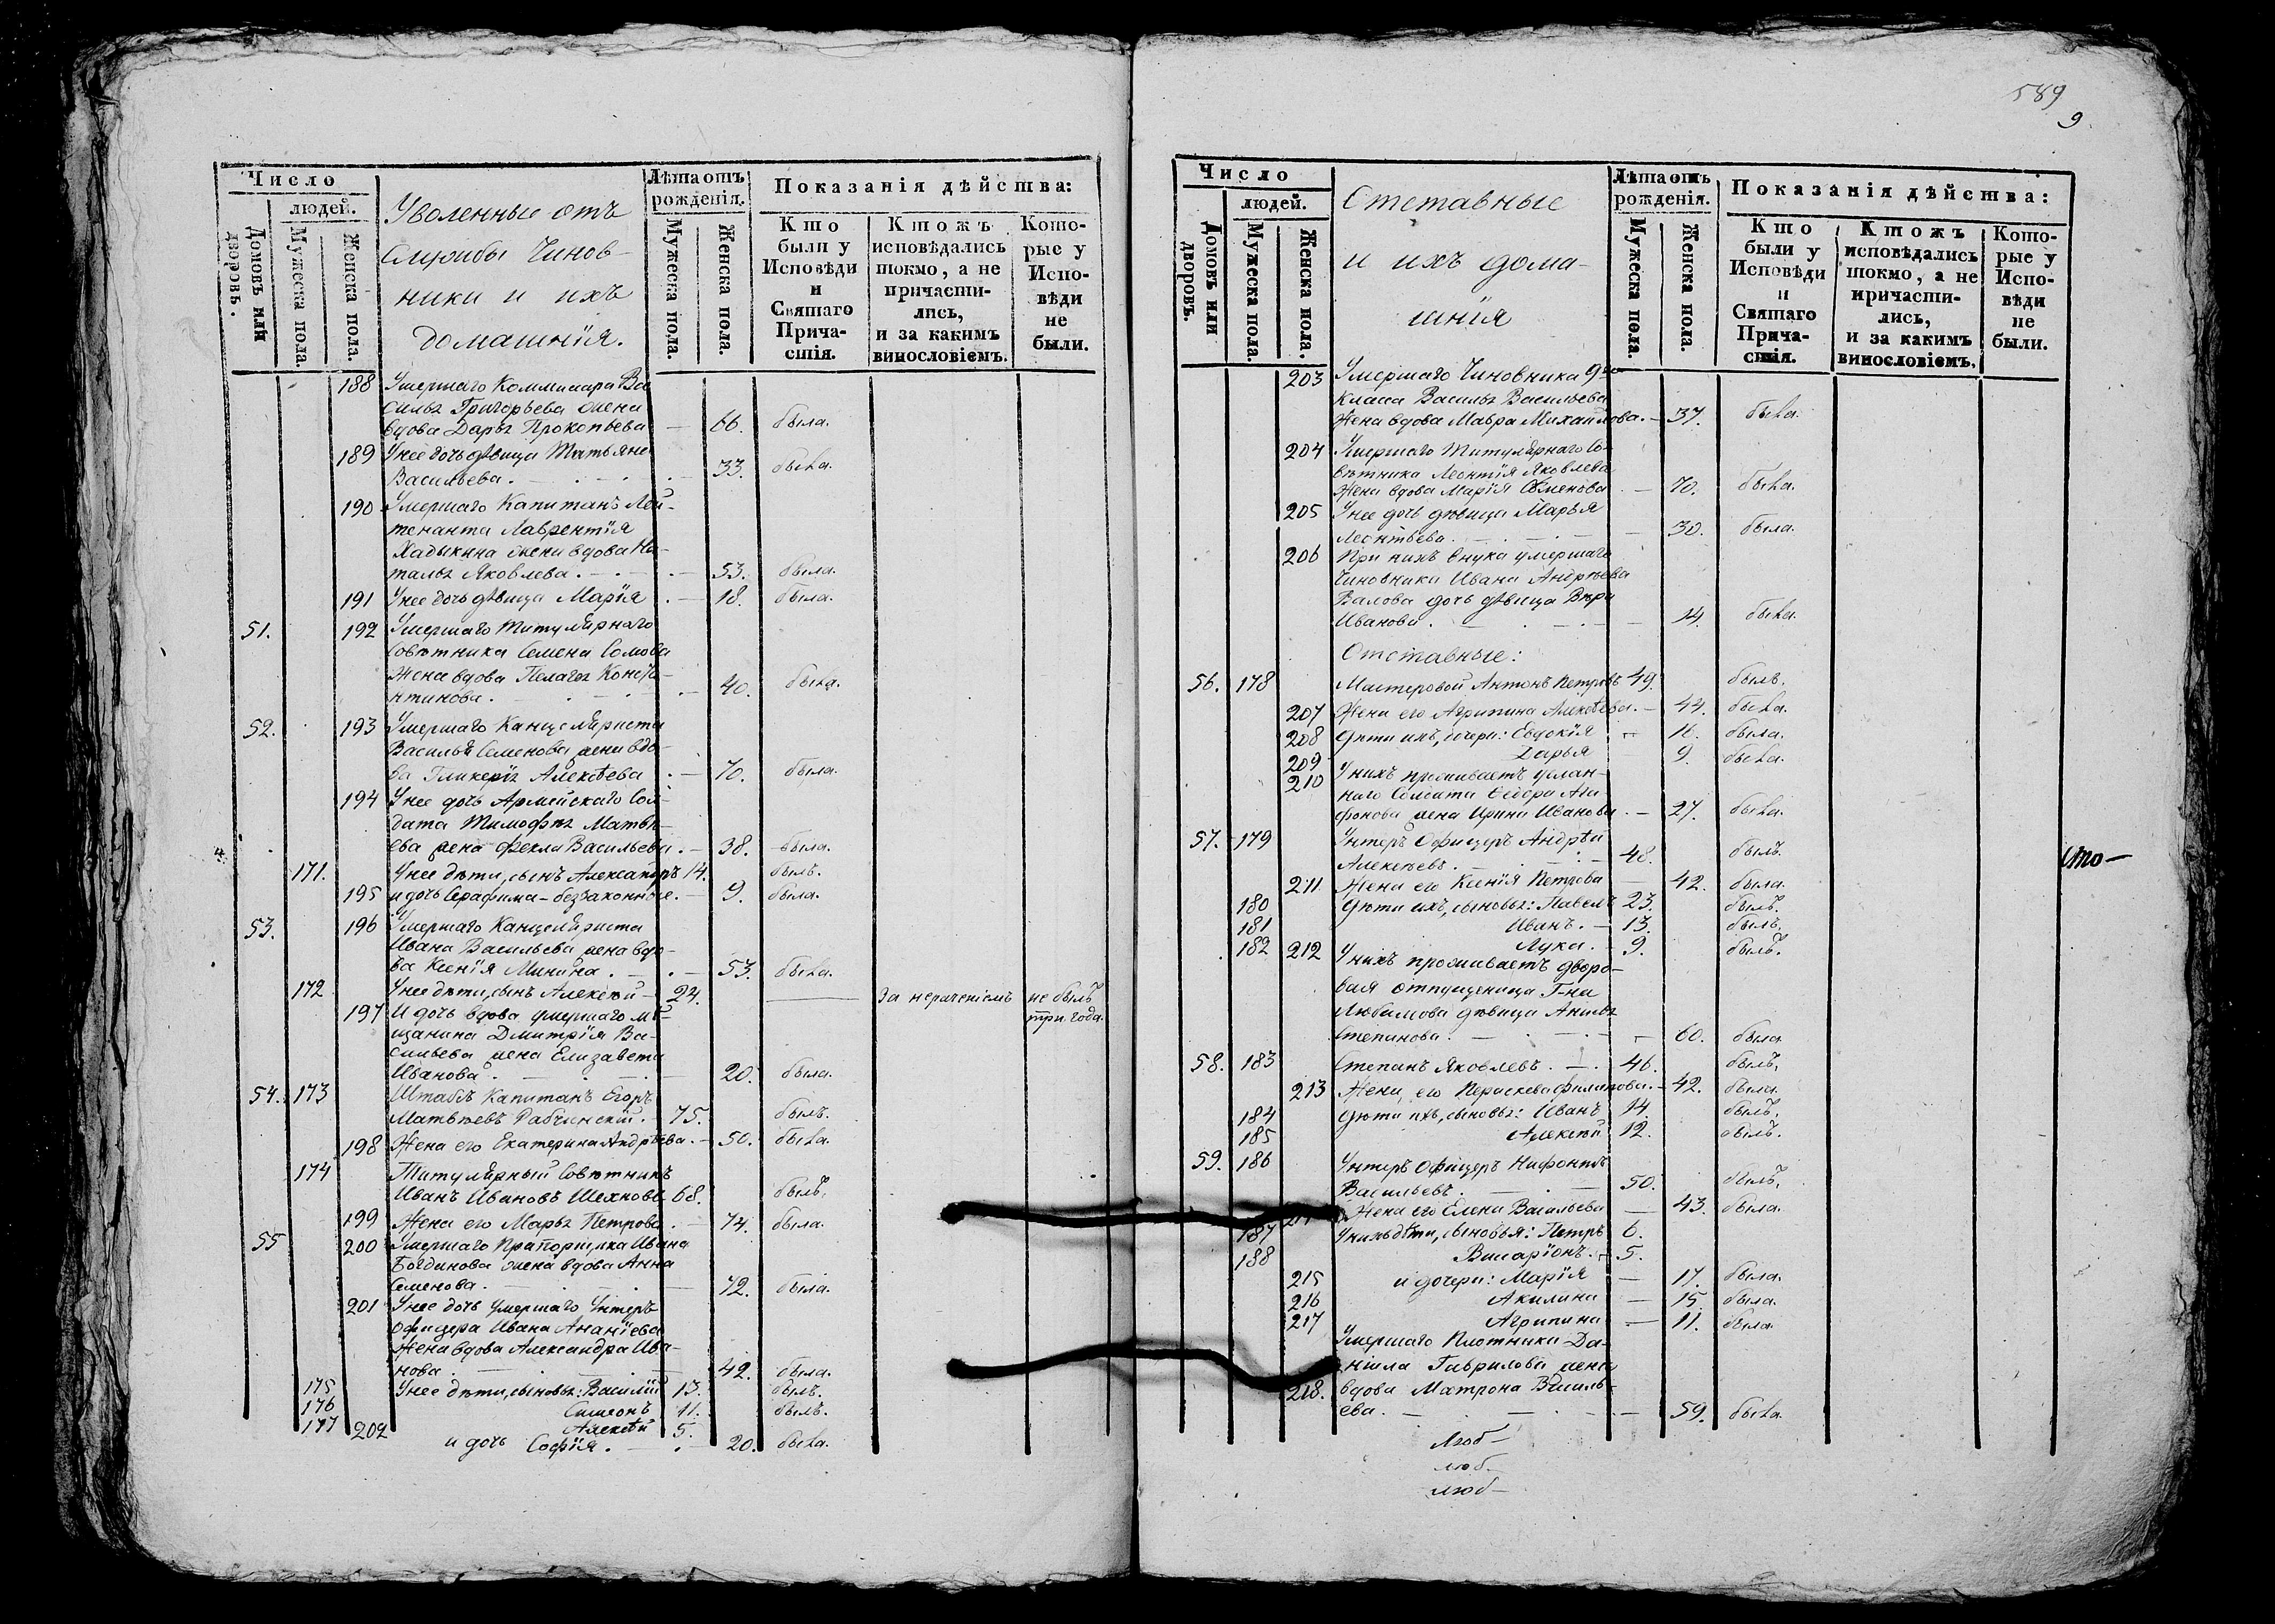 Число
людей.
Домовъ или дворовъ.
Мужеска пола.
Женска пола.
Уволенные отъ
Службы Чинов-
ники и ихъ
домашнія.
Лѣта отъ
рожденія.
Мужеска пола.
Женска пола.
Показанія дѣйства:
Кто
были у
Исповѣди
и
Святаго
Прича-
стія.
Ктожъ
исповѣдались
токмо, а не
причасти-
лись,
и за какимъ
винословіемъ.
Кото-
рые у
Испо-
вѣди
не
были.
188 Умершаго Коммисара Ва
силья Григорьева жена
вдова Дарья Прокопьева — 66. была.
189 У нее дочь дѣвица Татьяна
Васильева. — 33. была.
190 Умершаго Капитанъ Лей-
тенанта Лаврентія
Хадыкина жена вдова На-
талья Яковлева. — 53. была.
191 У нее дочь дѣвица Марія — 18. была.
51. 192 Умершаго Титулярнаго
Совѣтника Семена Сомова
Жена вдова Пелагея Конста-
нтинова. — 40. была.
52. 193 Умершаго Канцеляриста
Василья Семенова жена вдо-
ва Гликерія Алексѣева — 70. была.
194 У нее дочь Армейскаго Сол-
дата Тимофея Матвѣ-
ева жена Фекла Васильева. — 38. была.
171. У нее дѣти, сынъ Александръ 14. былъ.
195 и дочь Серафима - беззаконные. — 9. была.
53. 196 Умершаго Канцеляриста
Ивана Васильева жена вдо-
ва Ксенія Минина. — 53. была.
172 У нее дѣти, сынъ Алексѣй — 24. — За нераченіемъ не былъ
три года.
197 И дочь вдова умершаго мѣ-
щанина Дмитрія Ва-
сильева жена Елизавета
Иванова. — 20. была.
54. 173 Штабсъ Капитанъ Егоръ
Матвѣевъ Рабчинскій. — 75. былъ.
198 Жена его Екатерина Андрѣева. — 50. была.
174 Титулярный Совѣтникъ
Иванъ Ивановъ Шехновъ 68. былъ.
199 Жена его Марья Петрова. — 74. была.
55 200 Умершаго Прапорщика Ивана
Богданова жена вдова Анна
Семенова. — 72. была.
201 У нее дочь умершаго Унтеръ
Офицера Ивана Ананіева
Жена вдова Александра Ива-
нова. — 42. была.
175 У нее дѣти, сыновья: Василій 13. былъ.
176 Симеонъ 11. былъ.
177 Алексѣй 5.
202 и дочь Софія. — 20. была.
589
9.
Число
людей.
Домовъ или дворовъ.
Мужеска пола.
Женска пола.
Отставные
и ихъ дома-
шнія
Лѣта отъ
рожденія.
Мужеска пола.
Женска пола.
Показанія дѣйства:
Кто
были у
Исповѣди
и
Святаго
Прича-
стія.
Ктожъ
исповѣдались
токмо, а не
причасти-
лись,
и за какимъ
винословіемъ.
Кото-
рые у
Испо-
вѣди
не
были.
203 Умершаго Чиновника 9го
класса Василья Васильева
Жена вдова Мавра Михайлова. — 37. была.
204 Умершаго Титулярнаго Со-
вѣтника Леонтія Яковлева
Жена вдова Марія Семенова — 70. была.
205 У нее дочь дѣвица Марья
Леонтьева. — 30. была.
206 При нихъ внука умершаго
Чиновника Ивана Андреева
Валова дочь дѣвица Вѣра
Иванова. — 14. была.
Отставные:
56. 178 Мастеровой Антонъ Петровъ 49. былъ.
207 Жена его Агрипина Алексѣева. — 44. была.
208 Дѣти ихъ, дочери: Евдокія — 16. была.
209 Дарья 9. была.
210 У нихъ проживаетъ услан-
наго Солдата Ѳедора Ага
фонова жена Ирина Иванова. — 27. была.
57. 179 Унтеръ Офицеръ Андрѣй
Алексѣевъ. — 48. былъ.
211 Жена его Ксенія Петрова — 42. была.
180 Дѣти ихъ, сыновья: Павелъ 23. былъ.
181 Иванъ. — 13. былъ.
182 Лука. — 9. былъ.
212 У нихъ проживаетъ дворо-
вая отпущеница Г-на
Любимова дѣвица Анна
Степанова. — 60. была
58. 183 Степанъ Яковлевъ. — 46. былъ.
213 Жена его Пераскева Филипова. — 42. была.
184 Дѣти ихъ, сыновья: Иванъ 14. былъ.
185 Алексѣй 12. былъ.
59. 186 Унтеръ Офицеръ Нифонтъ
Васильевъ. — 50. былъ.
Жена его Елена Васильева — 43. была.
187 У нихъ дѣти, сыновья: Петръ 6.
188 Висаріонъ. — 5.
215 и дочери: Марія — 17. была.
216 Акилина — 15. была.
217 Агрипина — 11. была.
Умершаго Плотника Да-
ніила Гаврилова жена
218. вдова Матрона Василь-
ева. — 59. была.
Люб-
люб-
люб-
сто-